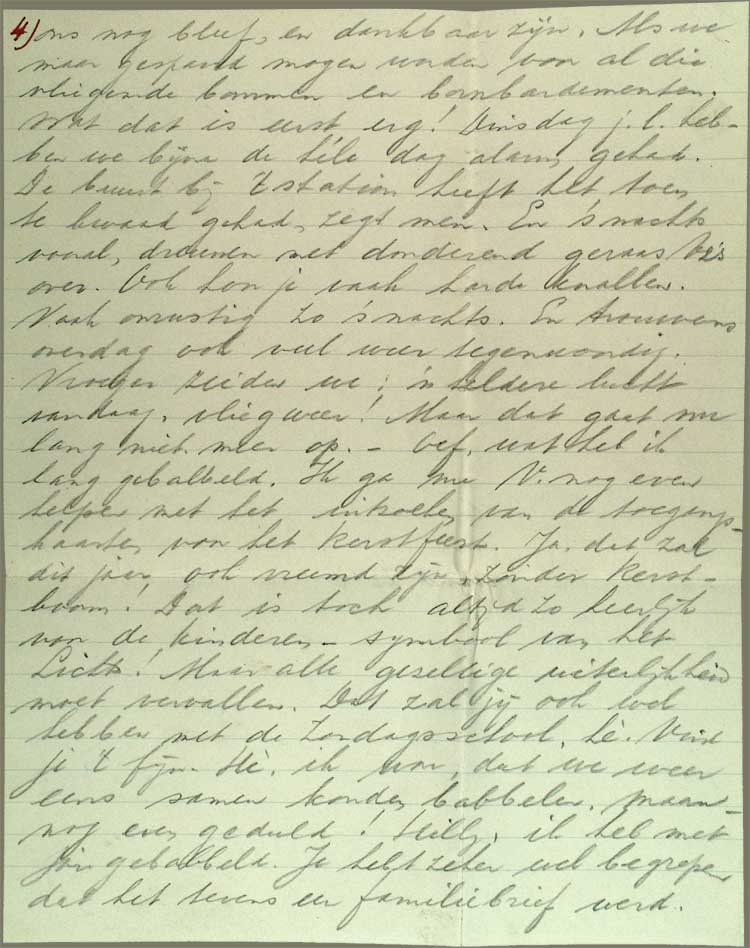 4) ons nog bleef, en dankbaar zijn. Als we
maar gespaard mogen worden voor al die
vliegende bommen en bombardementen.
Want dat is eerst erg! Dinsdag j.l. heb-
ben we bijna de héle dag alarm gehad.
De buurt bij 't station heeft het toen
te kwaad gehad, zegt men. En 's nachts
vooral, dreunen met donderend geraas V2's
over. Ook hoor je vaak harde knallen.
Vaak onrustig zo 's nachts. En trouwens
overdag ook veel weer tegenwoordig.
Vroeger zeiden we; 'n heldere lucht
vandaag, vliegweer! Maar dat gaat nu
lang niet meer op. - Oef, wat heb ik
lang gebabbeld. Ik ga nu V. nog even
helpen met het inkoelen van de toegangs-
kaarten voor het Kerstfeest. Ja, dat zal
dit jaar ook vreemd zijn, zonder Kerst-
boom! Dat is toch altijd zo heerlijk
voor de kinderen - symbool van het
Licht! Maar alle gezellige uiterlijkheid
moet vervallen. Dat zal jij ook wel
hebben met de Zondagsschool, hè. Vind
je 't fijn. Hè, ik wou, dat we weer
eens samen konden babbelen, maar
nog even geduld! Hilly, ik heb met
jou gebabbeld. Je hebt zeker wel begrepen
dat het tevens een familiebrief werd.